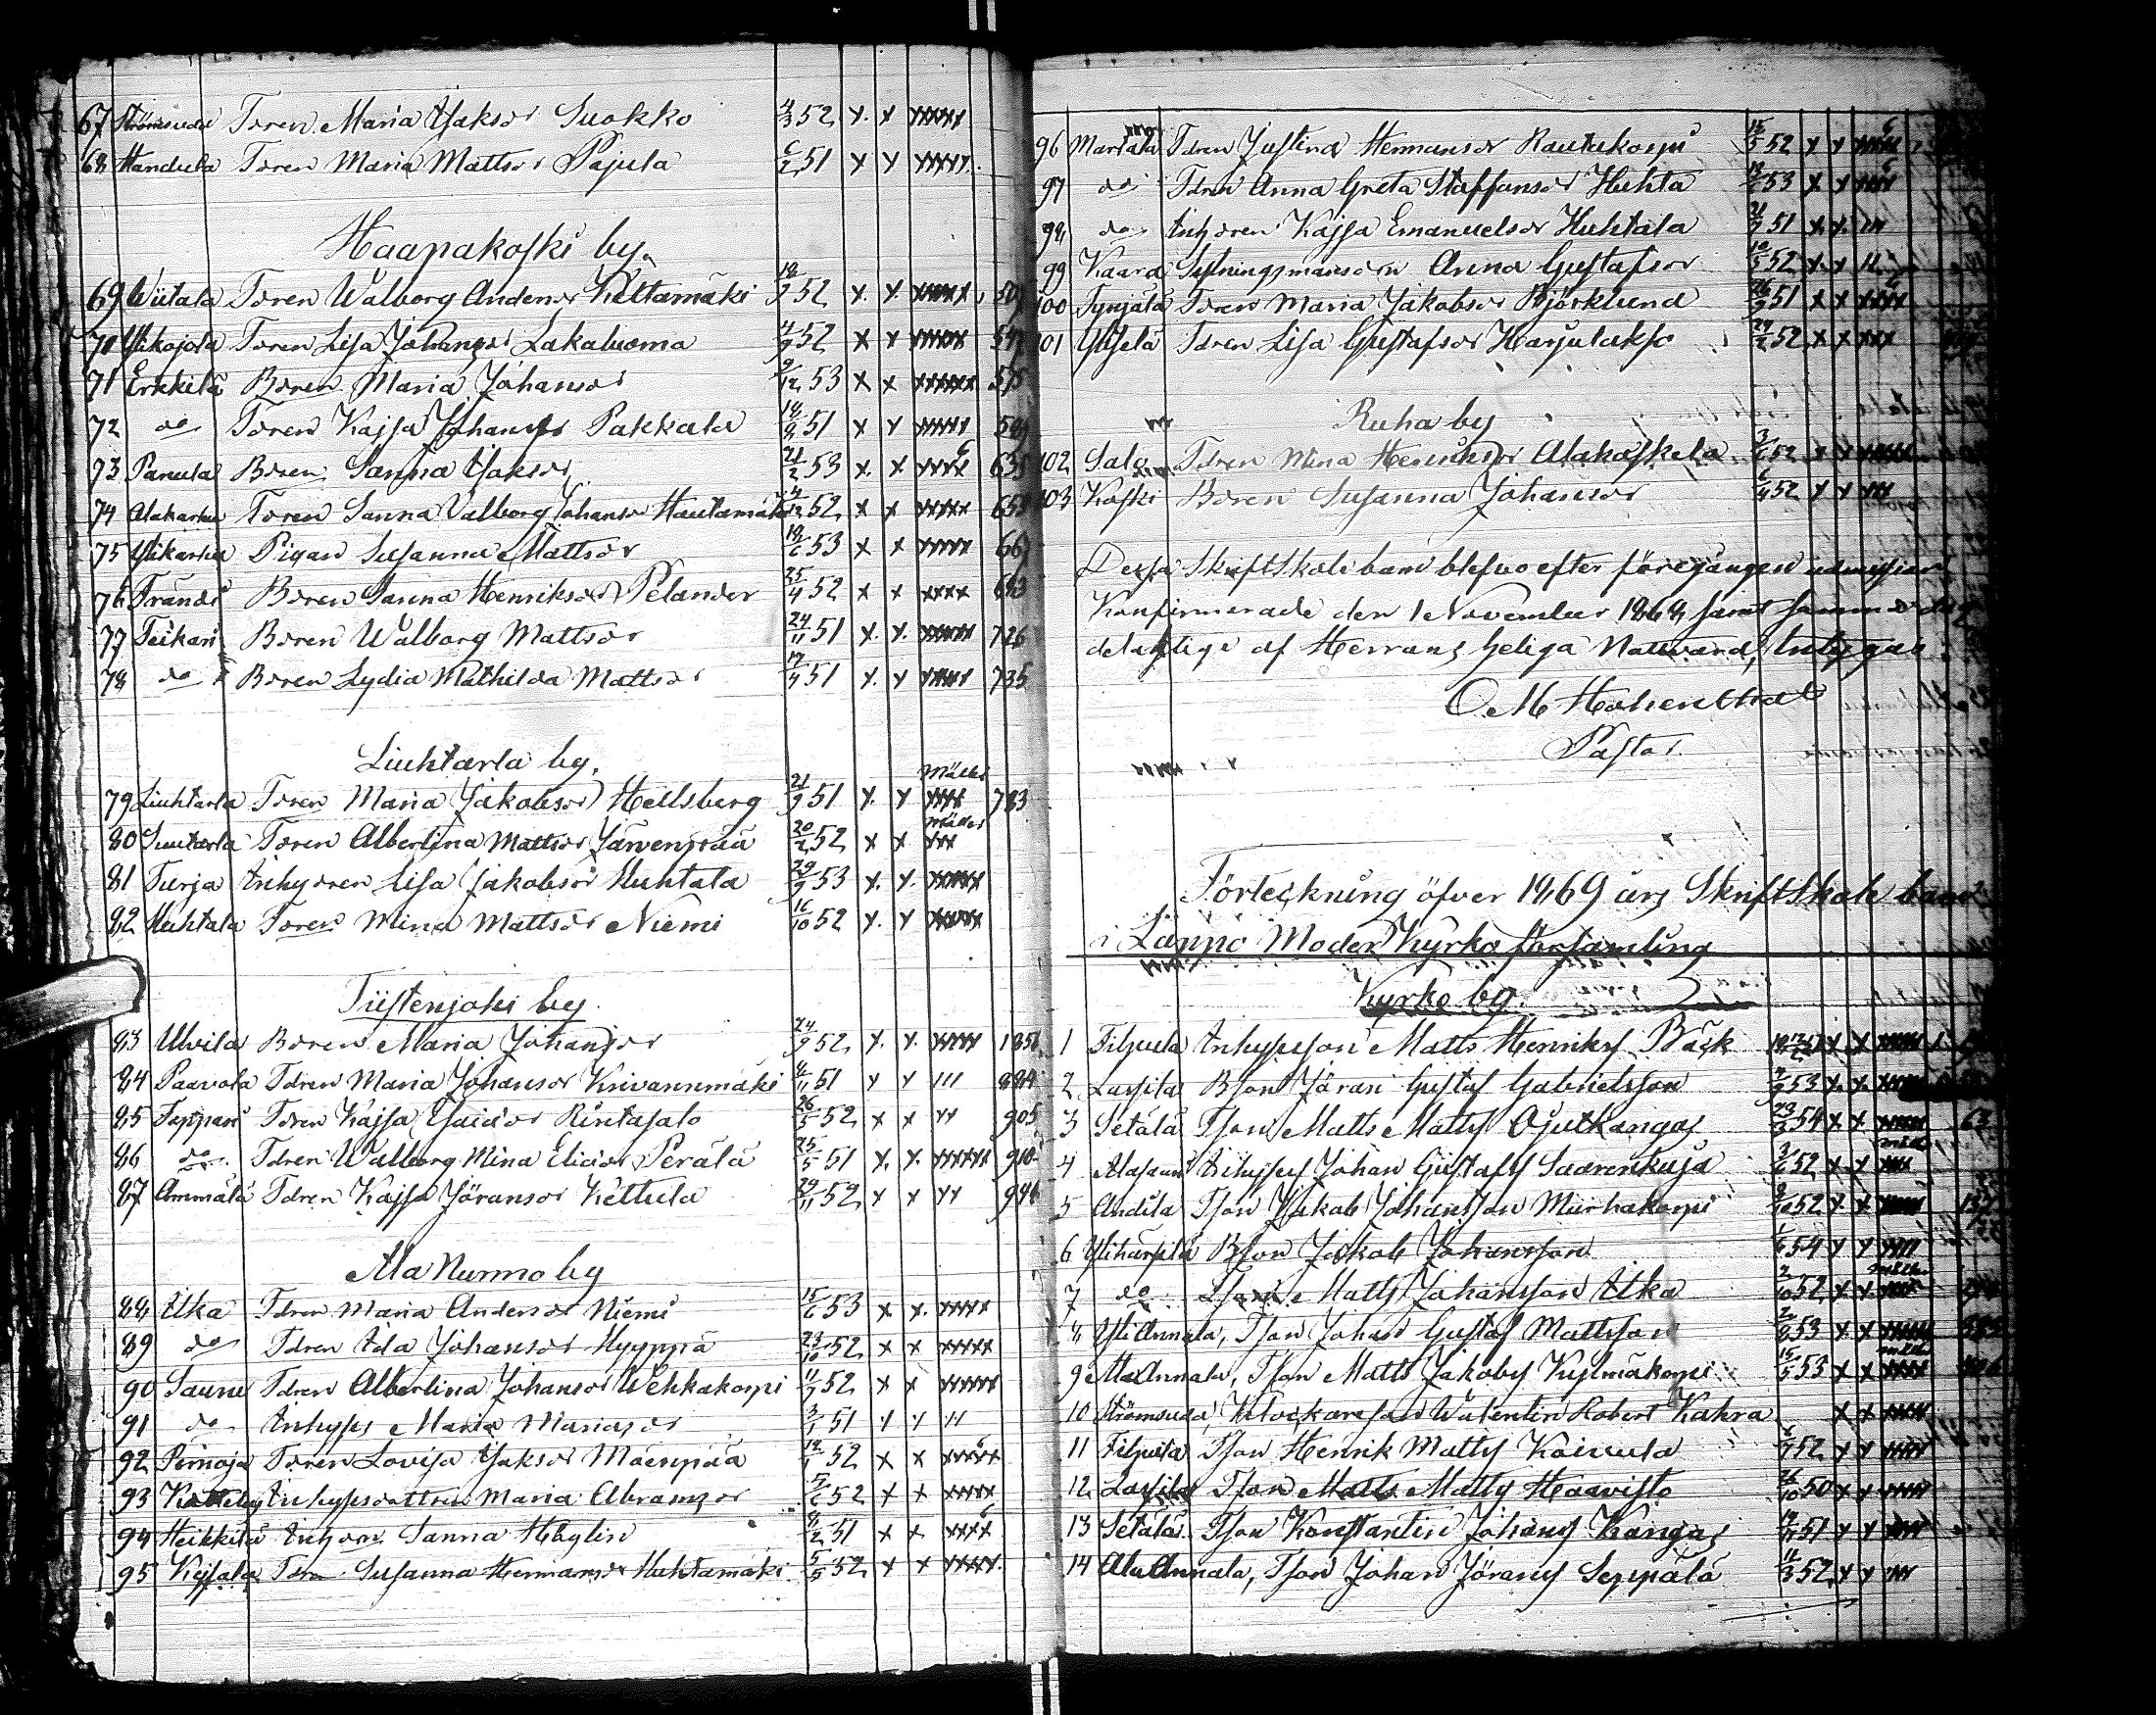 67 Strömsuda Tdren Maria Isaksdr Suokko 4/3 52 x. x xxxxx
68 Handula Tdren Maria Mattsdr Pajula 6/2 51 x x xxxxx
Haapakoski by.
69 Wiitala Tdren Walborg Andersdr Keltamäki 52 x. x. xxxxx 509
70 Ylikojola Tdren Lisa Johansdr Lakaluoma 52 x x xxxxx
71 Erkkilä Bdren Maria Johansdr 9/12 53 x x xxxxxx 575
72 do Tdren Kajsa Johansdr Pakkala 51 x x xxxxx
73 Panula Bdren Sanna Isaksdr 21/2 53 x. x xxxx 635
74 Alakarhu Tdren Sanna Valborg Johansdr Hautamäki 4/12 52 x x xxxxx 659
75 Ylikarhu Pigan Susanna Mattsdr 53 x x xxxxx 667
76 Frändi Bdren Sanna Henriksdr Pelander 25/4 52 x x xxxx 693
77 Teikari Bdren Walborg Mattsdr 24/11 51 x. x. xxxxx 726
78 do Bdren Lydia Mathilda Mattsdr 17/4 51 x. x xxxxx 735
Liuhtarla by.
79 Liuhtarla Tdren Maria Jakobsdr Hellsberg 21/9 51 x. x xxxx 783
80 Liuhtarla Tdren Albertina Mattsdr Järvenpää 20/2 52 x x xxx
81 Turja Inhydren Lisa Jakobsdr Huhtala 29/9 53 x. x. xxxxx
82 Huhtala Tdren Mina Mattsdr Niemi 16/10 52 x. x xxxxx
Tiistenjoki by.
83 Ulvila Bdren Maria Johansdr 24/9 52 x. x. xxxxx
84 Paavola Tdren Maria Johansdr Knivannmäki 51 x x III 884
85 Foppari Tdren Kajsa Isaicdr Rintasalo 26/5 52 x x xx 905
86 do Tdren Walborg Mina Eliædr Perälä 25/5 51 x. x. xxxxx 910
87 Ammälä Tdren Kajsa Jöransdr Kettula 29/11 52 x x xx 946
Ala Nurmo by
88 Ilka Tdren Maria Andersdr Niemi 15/6 53 x x. xxxxx
89 do Tdren Ida Johansdr Hyyppä 23/10 52 x x xxxxx
90 Saunu Tdren Albertina Johansdr Wehkakorpi 11/9 52 x x xxxxx
91 do Inhyps Maria Mariasdr 3/1 51 x x II
92 Pirnoja Tdren Lovisa Isaksdr Mäenpää 52 x x xxxxx
93 Inhypsdottren Maria Abramsdr 5/6 52 x x xxxxx
94 Heikkilä Inhdren Sanna Häglin 51 x x. xxxx
95 Kojola Tdren Susanna Hermansdr Huhtamäki 5/5 52 x x xxxxx
96 Marttala Tdren Justina Hermansdr Rautakorpi 15/5 52 x x xxxx
97 do Tdren Anna Greta Staffansdr Huhta 53 x. x xxx
98 do Inhdren Kajsa Emanuelsdr Huhtala 21/9 51 x. x. III
99 Kaara Sytningsmansdrn Anna Gustafsdr 10/5 52 x. x II
100 Tynjälä Tdren Maria Jakobsdr Björklund 26/9 51 x x xxxx
101 Tdren Lisa Gustafsdr Harjulakso 24/2 52 x x xxx
Ruha by
102 Salo Tdren Mina Henriksdr Alakaskela 52 x x xxxxx
103 Koski Bdren Susanna Johansdr 6/4 52 x x xxx
Dessa Skriftskolebarn blefvo efter föregången admission
Konfirmerade den 1 November 1868, samt samma dag
delaktige af Herrans heliga Nattvard, intygar
O M Hohenthal
Pastor.
Förteckning öfver 1869 års Skriftskole barn
i Lappo Moder Kyrko församling
Kyrko by.
1 Filpula Inhypson Matts Henriks Bäck x x xxxxx
2 Lassila Bson Jöran Gustaf Gabrielsson 53 x. x. xxxx
3 Setälä Tson Matts Matts Ojutkangas 23/3 54 x x xxxxx 63
4 Alasaari Inhyses Johan Gustafs Saarenkuja 3/6 52 x x xxx
5 Andila Tson Jakob Johansson Murhakorpi 8/10 52 x. x. xxxxx
6 Yliharpila Bson Jakob Johansson 1/6 54 x x xxxx
7 do Lson Matts Johansson Ilka 2/10 52 x x xxxx
8 Yli Annala, Tson Johan Gustaf Mattsson 53 x x xxxxx
9 Ala Annala, Tson Matts Jakobs Kylmäkorpi 15/5 53 x x xxxx
10 Strömsuda, Klockareson Walentin Robert Kahra x x xxxx
11 Filpula Tson Henrik Matts Koivula 52 x x xxxx
12 Lassila Tson Matts Matts Haavisto 26/10 50 x x xxxx
13 Setälä Tson Konstantin Johans Kangas 51 x x xxx
14 Ala Annala, Tson Johan Jörans Seppälä 11/3 52 x x xxx